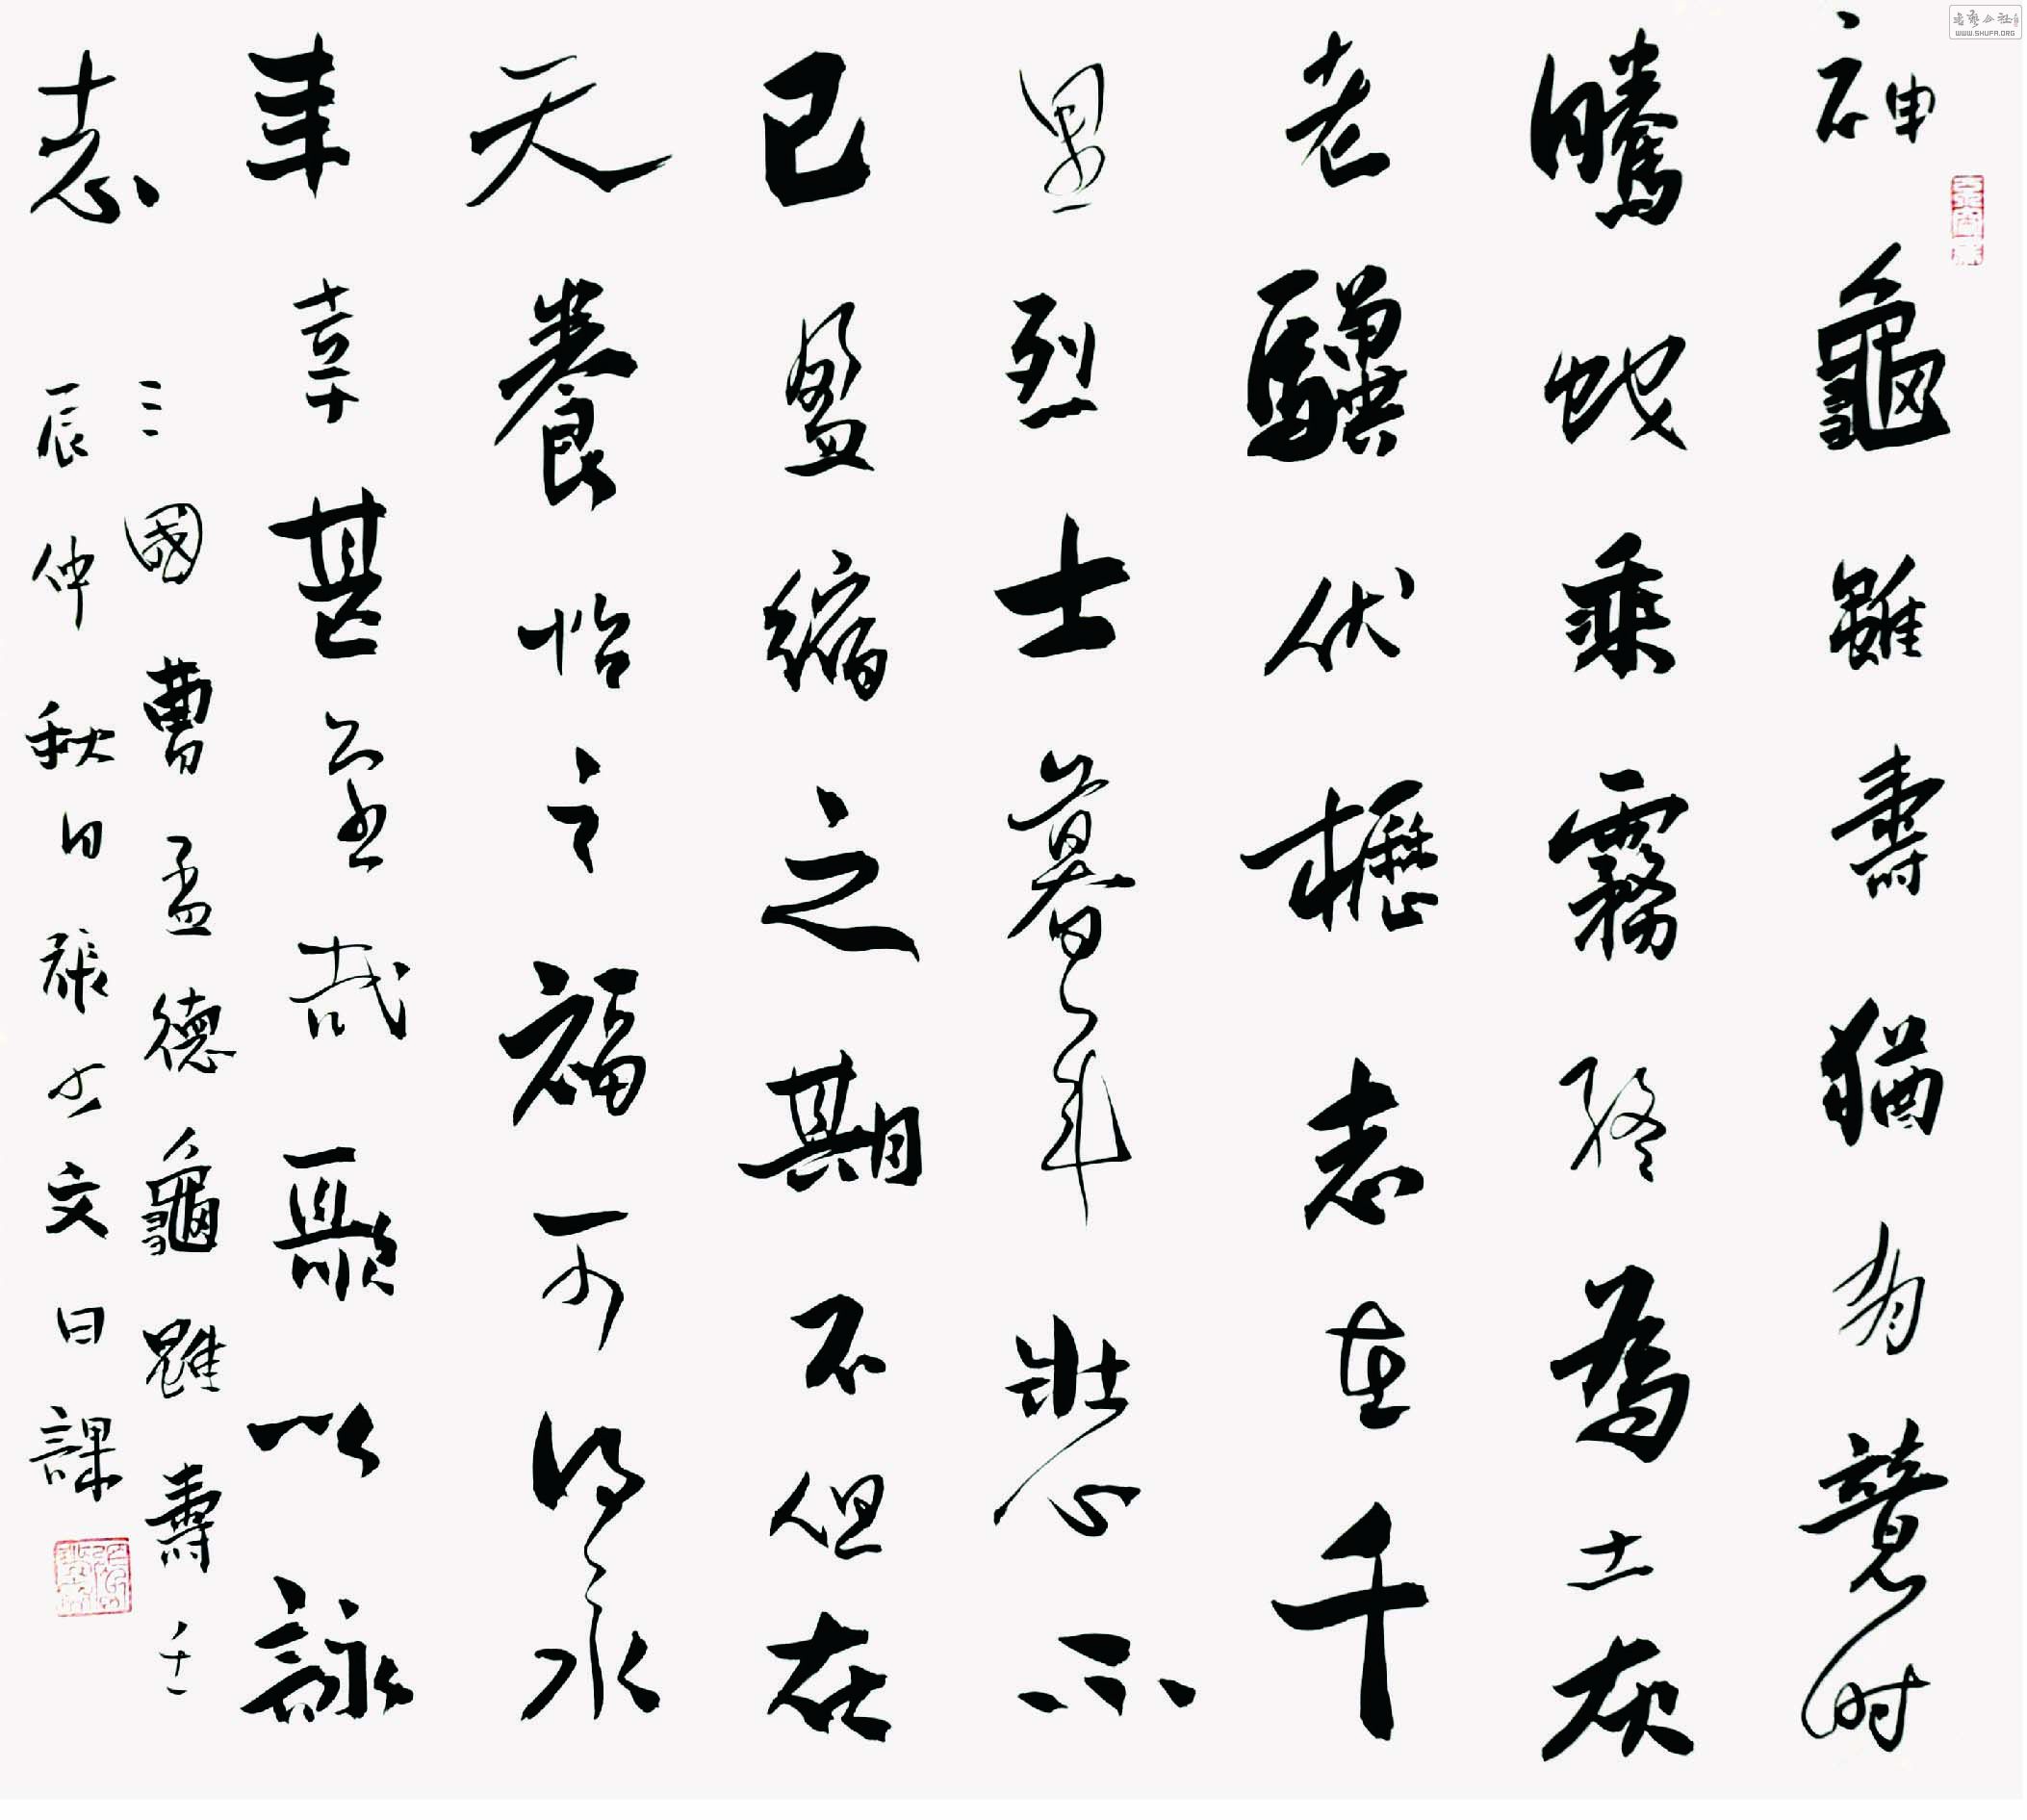 神龜雖壽猶有竟時
騰蛇乘霧終為土灰
老驥伏櫪志在千
里烈士暮年壯心不
已盈縮之期不但在
天養怡之福可得永
年幸甚至哉歌以詠
志
三國曹孟德龜雖壽壬
辰仲秋日張少文日課
WWW.SHUFA.ORG